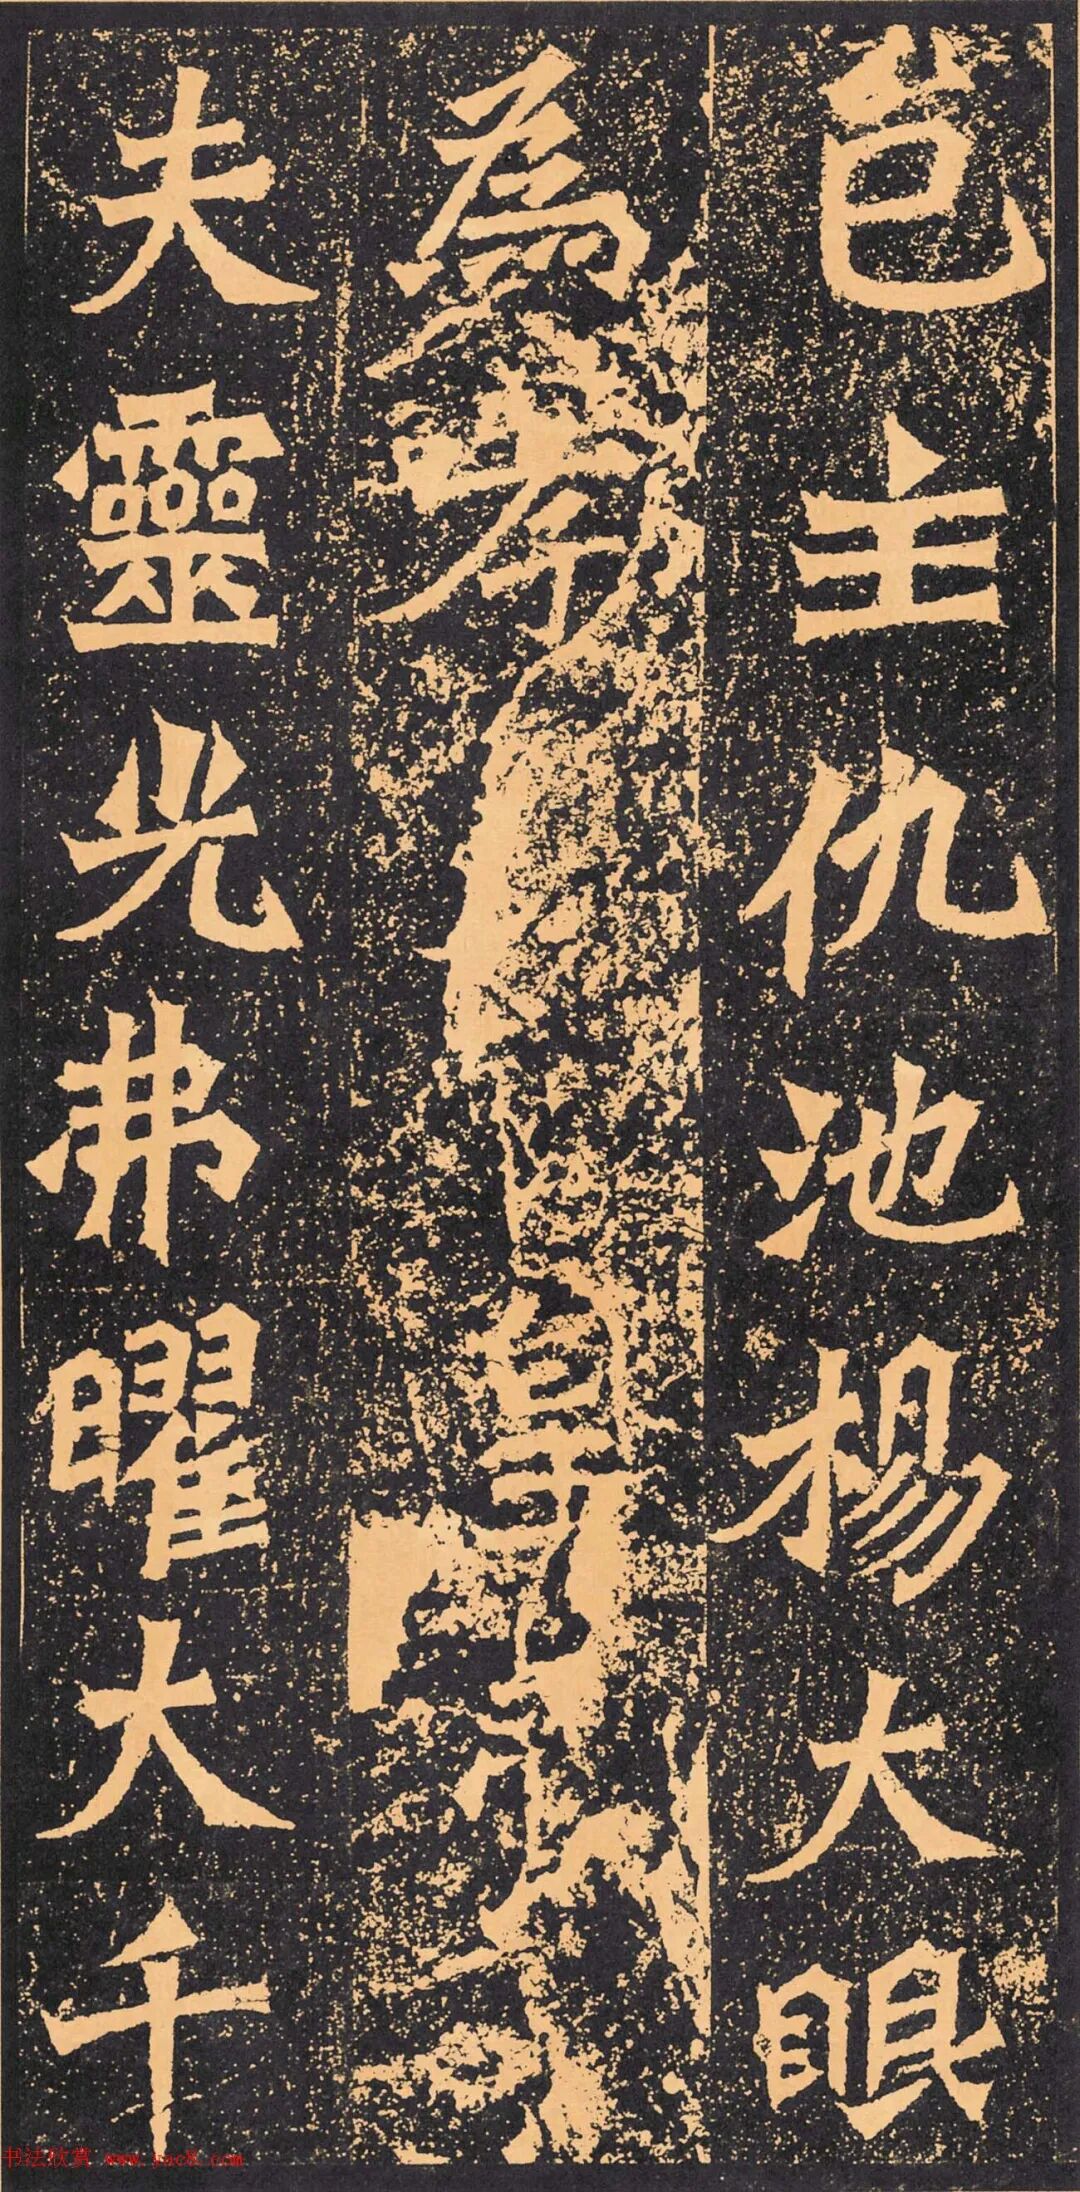 邑主仇池楊大眼
為孝皇帝
夫靈光弗曜大千
书法欣赏 www.yac8.com